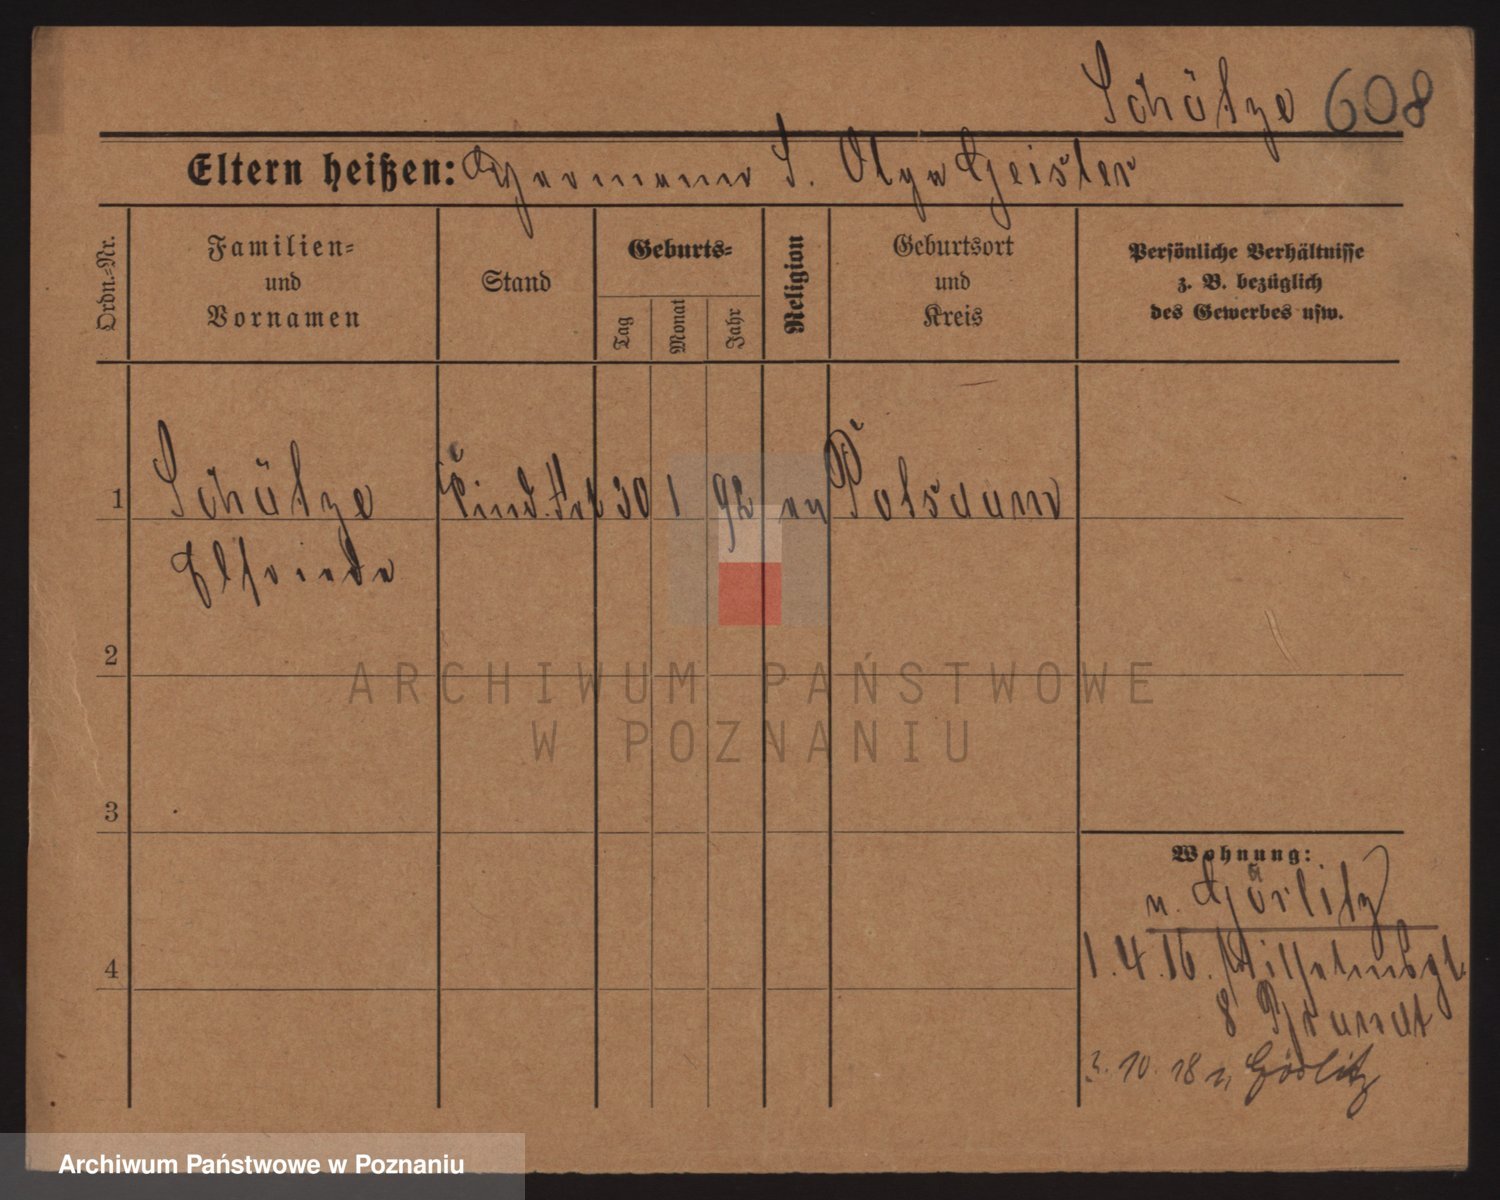 Schütze 608
Eltern heißen: Hermann S. Olga Geisler
Ordn.-Nr.
Familien-
und
Vornamen
Stand
Geburts-
Tag
Monat
Jahr
Religion
Geburtsort
und
Kreis
Persönliche Verhältnisse
z. B. bezüglich
des Gewerbes usw.
1 Schütze Kind. Frl 30 1 92 ev Potsdam
Elfriede
2
3
4
Wohnung:
n. Görlitz
1.4.16. Wilhelmsgt.
8
3.10.18 n Görlitz
ARCHIWUM PAŃSTWOWE
W POZNANIU
Archiwum Państwowe w Poznaniu